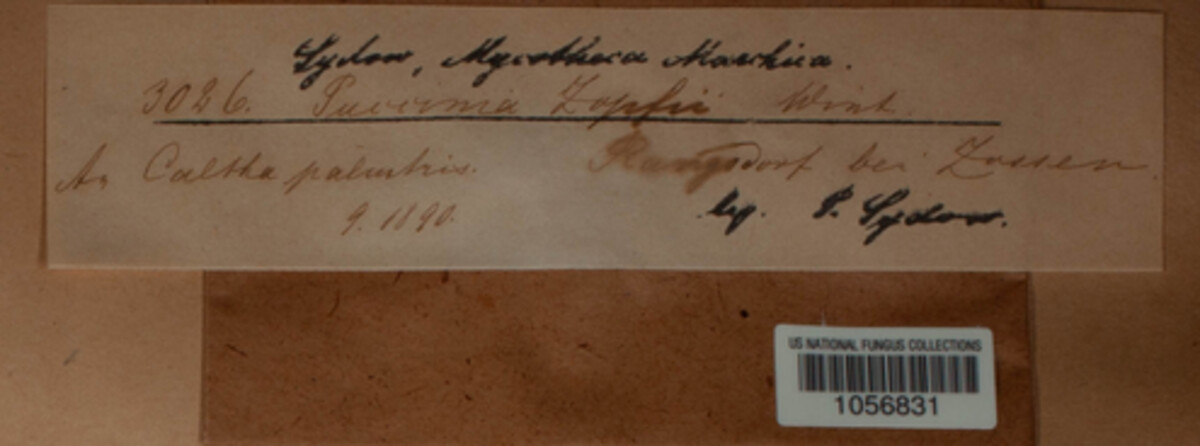 Sydow, Mycotheca Marchica.
3026. Puccinia Zopfii Wint.
An Caltha palustris. Rangsdorf bei Zossen.
9. 1890. leg. P. Sydow.
US NATIONAL FUNGUS COLLECTIONS
1056831